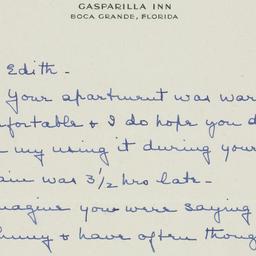 GASPARILLA INN
BOCA GRANDE, FLORIDA
Edith -
Your apartment was war
fortable & I do hope you d
my using it during your
was 3½ hrs late -
you were saying
& have often thoug